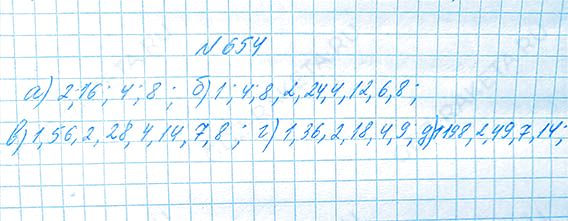 №654
а) 2;16; 4; 8; б) 1; 4; 8, 2, 24,4,12,6,8;
в) 1,56,2, 28,4,14,7,8; г) 1,36,2,18,4,9, д) 1 198,2,49,7,14;